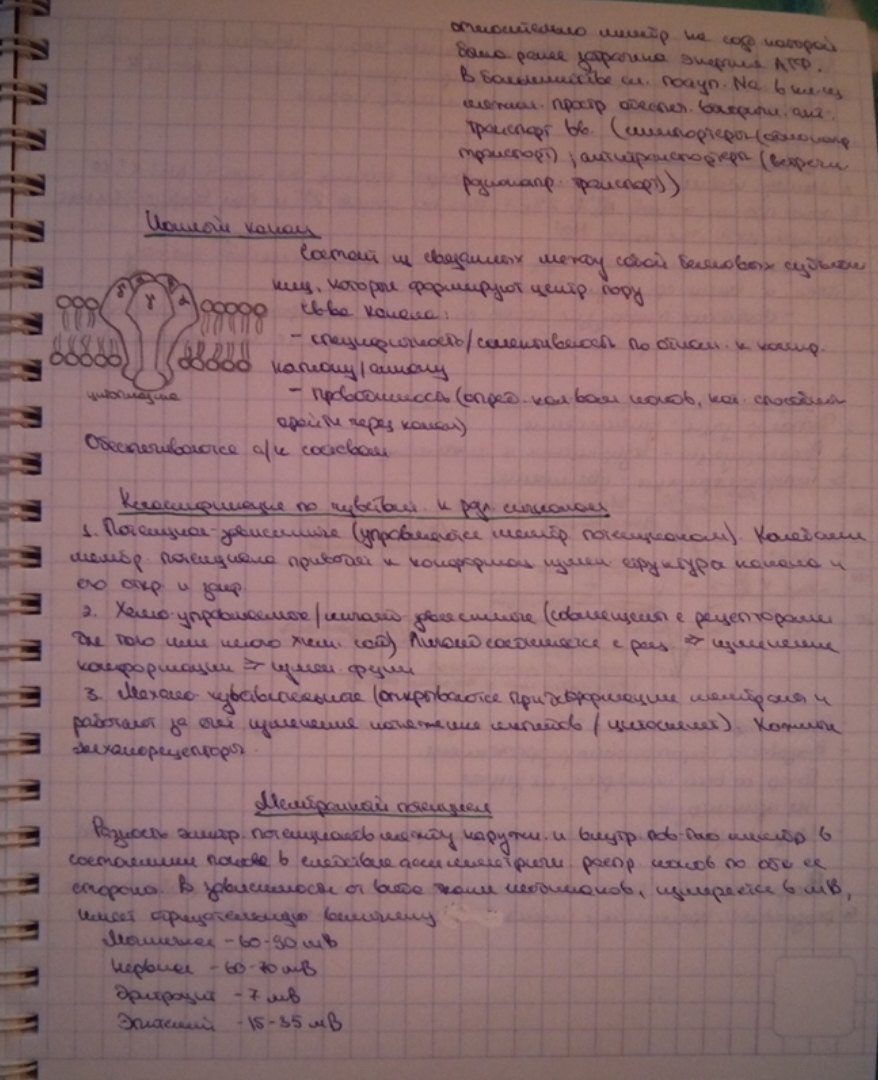 относительно мембр на созд которой
была ранее затрачена энергия АТФ.
В большинстве сл. поступ. Na в кл. из
межкл. простр обеспеч. вторичн. акт.
транспорт вв. (симпортеры (однонапр
транспорт), антитранспортеры (встречн
разнонапр. транспорт))
Ионный канал
Состоит из связанных между собой белковых субъеди
ниц, которые формируют центр пору
Св-ва канала:
- специфичность/селективность по отнош. к конкр.
катиону/аниону
- проводимость (опред. кол-вом ионов, кот. способны
пройти через канал)
цитоплазма
Обеспечиваются а/к составом
Классификация по чувствит. к разл сигналам
1. Потенциал-зависимые (управляются мембр. потенциалом). Колебания
мембр. потенциала приводят к конформац измен структуры канала и
его откр. и закр.
2. Хемо-управляемые/лиганд зависимые (совмещены с рецепторами
для того или иного хим. соед) Лиганд соединяется с рец. => изменение
конформации => измен. функции
3. Механо-чувствительные (открываются при деформации мембраны и
работают за счет изменения натяжения липидов / цитоскелет). Кожные
механорецепторы.
Мембранный потенциал
Разность электр. потенциалов между наружн. и внутр. пов-тью мембр в
состоянии покоя в следствие ассиметричн распр. ионов по обе ее
стороны. В зависимости от вида ткани неодинаков, измеряется в мВ,
имеет отрицательную величину
Мышечная -60-90 мВ
Нервная -60-70 мВ
Эритроцит -7 мВ
Эпителий -15-35 мВ